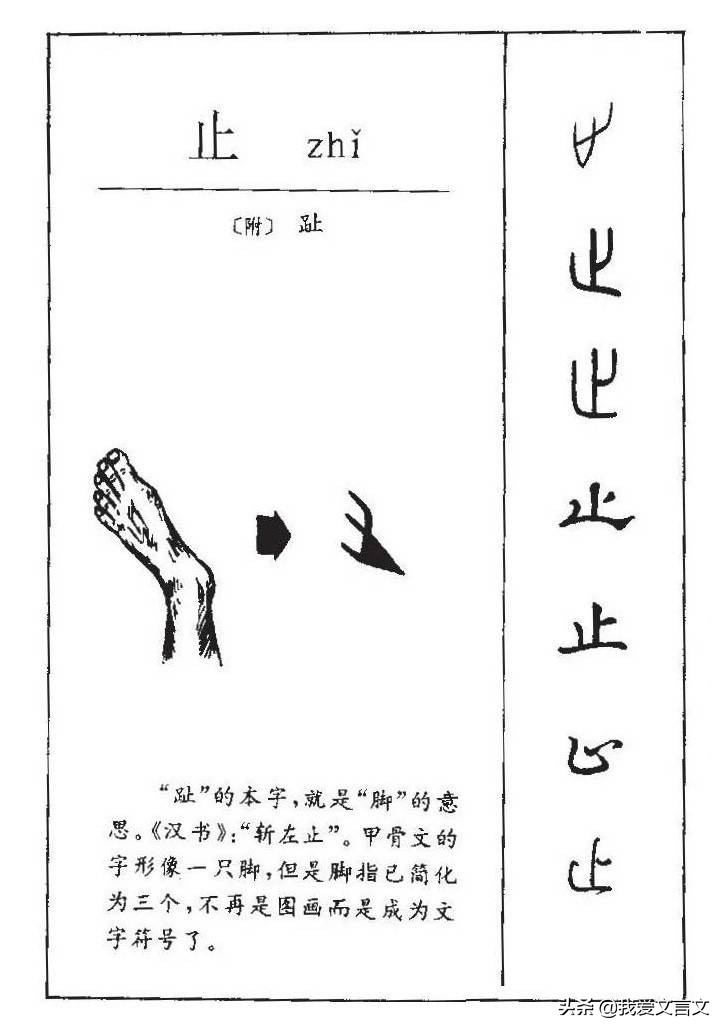 止 zhǐ
〔附〕 趾
“趾”的本字，就是“脚”的意
思。《汉书》：“斩左止”。甲骨文的
字形像一只脚，但是脚指已简化
为三个，不再是图画而是成为文
字符号了。
止
止
止
止
止
止
止
头条 @我爱文言文